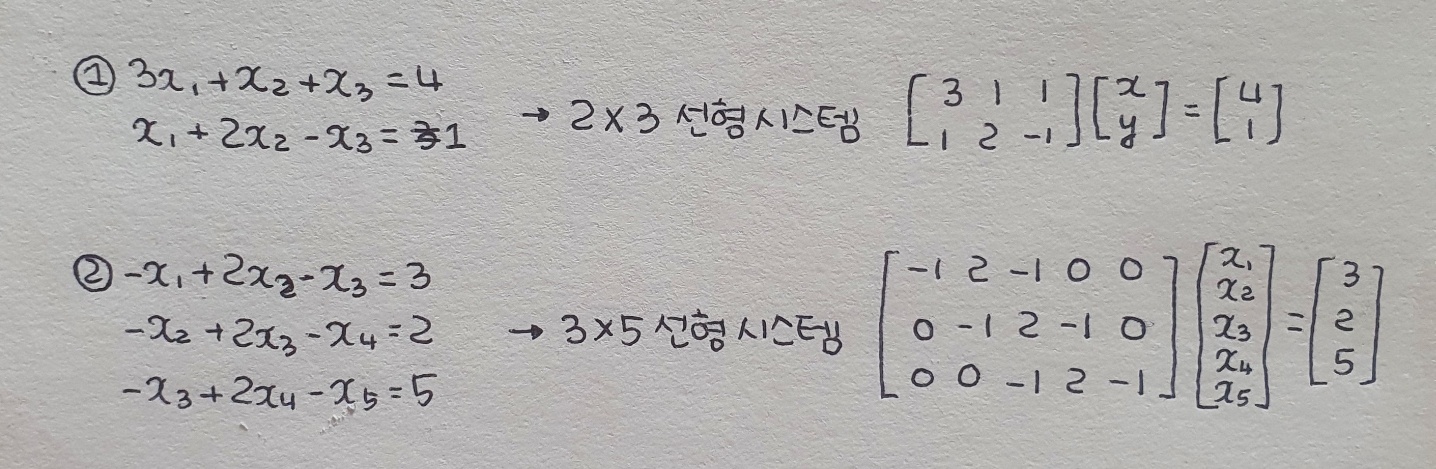 ① 3x₁+x₂+x₃=4
x₁+2x₂-x₃=1
→ 2×3 선형시스템 [3 1 1; 1 2 -1][x; y]=[4; 1]
② -x₁+2x₂-x₃=3
-x₂+2x₃-x₄=2
-x₃+2x₄-x₅=5
→ 3×5 선형시스템 [-1 2 -1 0 0; 0 -1 2 -1 0; 0 0 -1 2 -1][x₁; x₂; x₃; x₄; x₅]=[3; 2; 5]